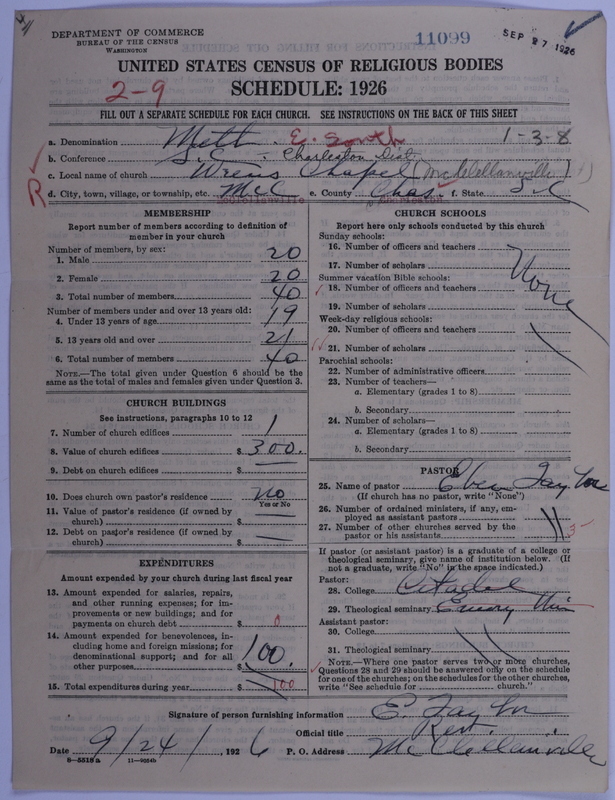 DEPARTMENT OF COMMERCE
BUREAU OF THE CENSUS
WASHINGTON
11099
SEP 27 1926
UNITED STATES CENSUS OF RELIGIOUS BODIES
2-9
SCHEDULE: 1926
FILL OUT A SEPARATE SCHEDULE FOR EACH CHURCH. SEE INSTRUCTIONS ON THE BACK OF THIS SHEET
a. Denomination Meth. E. South 1-3-8
b. Conference S.C. Charleston Dist.
c. Local name of church Wrens Chapel (McClellanville)
R
d. City, town, village, or township, etc. McC e. County Chas. f. State S.C
McClellanville Charleston
MEMBERSHIP
Report number of members according to definition of member in your church
Number of members, by sex:
1. Male 20
2. Female 20
3. Total number of members 40
Number of members under and over 13 years old:
4. Under 13 years of age 19
5. 13 years old and over 21
6. Total number of members 40
NOTE.—The total given under Question 6 should be the same as the total of males and females given under Question 3.
CHURCH BUILDINGS
See instructions, paragraphs 10 to 12
7. Number of church edifices 1
8. Value of church edifices $ 300.
9. Debt on church edifices $ —
10. Does church own pastor's residence No
Yes or No
11. Value of pastor's residence (if owned by church) $ —
12. Debt on pastor's residence (if owned by church) $ —
EXPENDITURES
Amount expended by your church during last fiscal year
13. Amount expended for salaries, repairs, and other running expenses; for improvements or new buildings; and for payments on church debt $ 0
14. Amount expended for benevolences, including home and foreign missions; for denominational support; and for all other purposes $ 100.
15. Total expenditures during year $ 100
CHURCH SCHOOLS
Report here only schools conducted by this church
Sunday schools:
16. Number of officers and teachers
17. Number of scholars
None
Summer vacation Bible schools:
18. Number of officers and teachers
19. Number of scholars
Week-day religious schools:
20. Number of officers and teachers
21. Number of scholars
Parochial schools:
22. Number of administrative officers
23. Number of teachers—
a. Elementary (grades 1 to 8)
b. Secondary
24. Number of scholars—
a. Elementary (grades 1 to 8)
b. Secondary
PASTOR
25. Name of pastor Eben Taylor
(If church has no pastor, write "None")
26. Number of ordained ministers, if any, employed as assistant pastors
27. Number of other churches served by the pastor or his assistants 3-
If pastor (or assistant pastor) is a graduate of a college or theological seminary, give name of institution below. (If not a graduate, write "No" in the space indicated.)
Pastor:
28. College Citadel
29. Theological seminary Emory Uni
Assistant pastor:
30. College
31. Theological seminary
NOTE.—Where one pastor serves two or more churches, Questions 28 and 29 should be answered only on the schedule for one of the churches; on the schedules for the other churches, write "See schedule for church."
Signature of person furnishing information E. Taylor
Official title Rev.
Date 9/24/ 1926 P. O. Address McClellanville
8-5518a 11-9034b